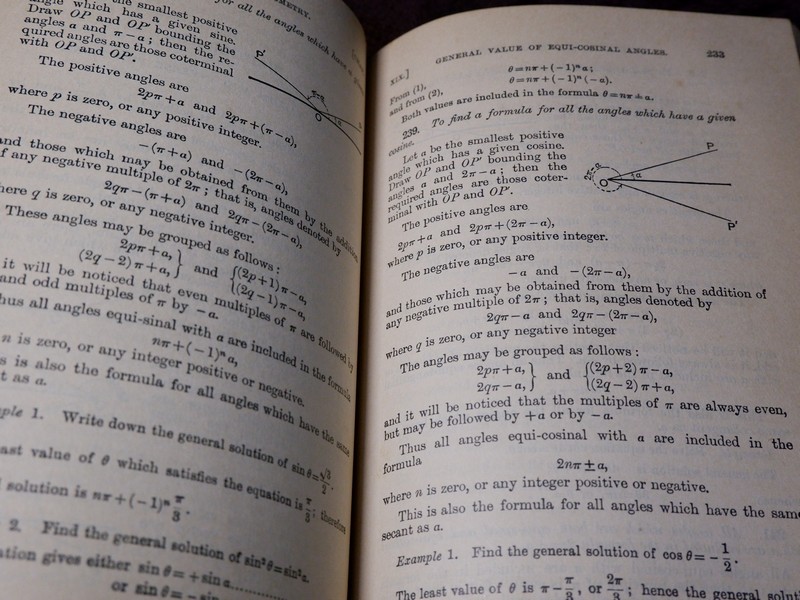 OMETRY.
for all the angles which have a
the smallest positive
angle which has a given sine.
Draw OP and OP' bounding the
angles a and π − a; then the re-
quired angles are those coterminal
with OP and OP'.
The positive angles are
2pπ + a and 2pπ + (π − a),
where p is zero, or any positive integer.
The negative angles are
− (π + a) and − (2π − a),
and those which may be obtained from them by the addition
of any negative multiple of 2π; that is, angles denoted by
2qπ − (π + a) and 2qπ − (2π − a),
here q is zero, or any negative integer.
These angles may be grouped as follows:
2pπ + a, } and { (2p + 1) π − a,
(2q − 2) π + a, } { (2q − 1) π − a,
it will be noticed that even multiples of π are followed by
and odd multiples of π by − a.
hus all angles equi-sinal with a are included in the formula
nπ + (− 1)ⁿ a,
n is zero, or any integer positive or negative.
s is also the formula for all angles which have the same
t as a.
ple 1. Write down the general solution of sin θ = √3/2.
east value of θ which satisfies the equation is π/3; therefore
solution is nπ + (− 1)ⁿ π/3.
2. Find the general solution of sin² θ = sin² a.
ation gives either sin θ = + sin a
or sin θ = − sin
P'
O
XIX.] GENERAL VALUE OF EQUI-COSINAL ANGLES. 233
From (1), θ = nπ + (− 1)ⁿ a;
and from (2), θ = nπ + (− 1)ⁿ (− a).
Both values are included in the formula θ = nπ ± a.
239. To find a formula for all the angles which have a given
cosine.
Let a be the smallest positive
angle which has a given cosine.
Draw OP and OP' bounding the
angles a and 2π − a; then the
required angles are those coter-
minal with OP and OP'.
P
O
a
P'
The positive angles are
2pπ + a and 2pπ + (2π − a),
where p is zero, or any positive integer.
The negative angles are
− a and − (2π − a),
and those which may be obtained from them by the addition of
any negative multiple of 2π; that is, angles denoted by
2qπ − a and 2qπ − (2π − a),
where q is zero, or any negative integer
The angles may be grouped as follows:
2pπ + a, } and { (2p + 2) π − a,
2qπ − a, } { (2q − 2) π + a,
and it will be noticed that the multiples of π are always even,
but may be followed by + a or by − a.
Thus all angles equi-cosinal with a are included in the
formula
2nπ ± a,
where n is zero, or any integer positive or negative.
This is also the formula for all angles which have the same
secant as a.
Example 1. Find the general solution of cos θ = − 1/2.
The least value of θ is π − π/3, or 2π/3; hence the general soluti